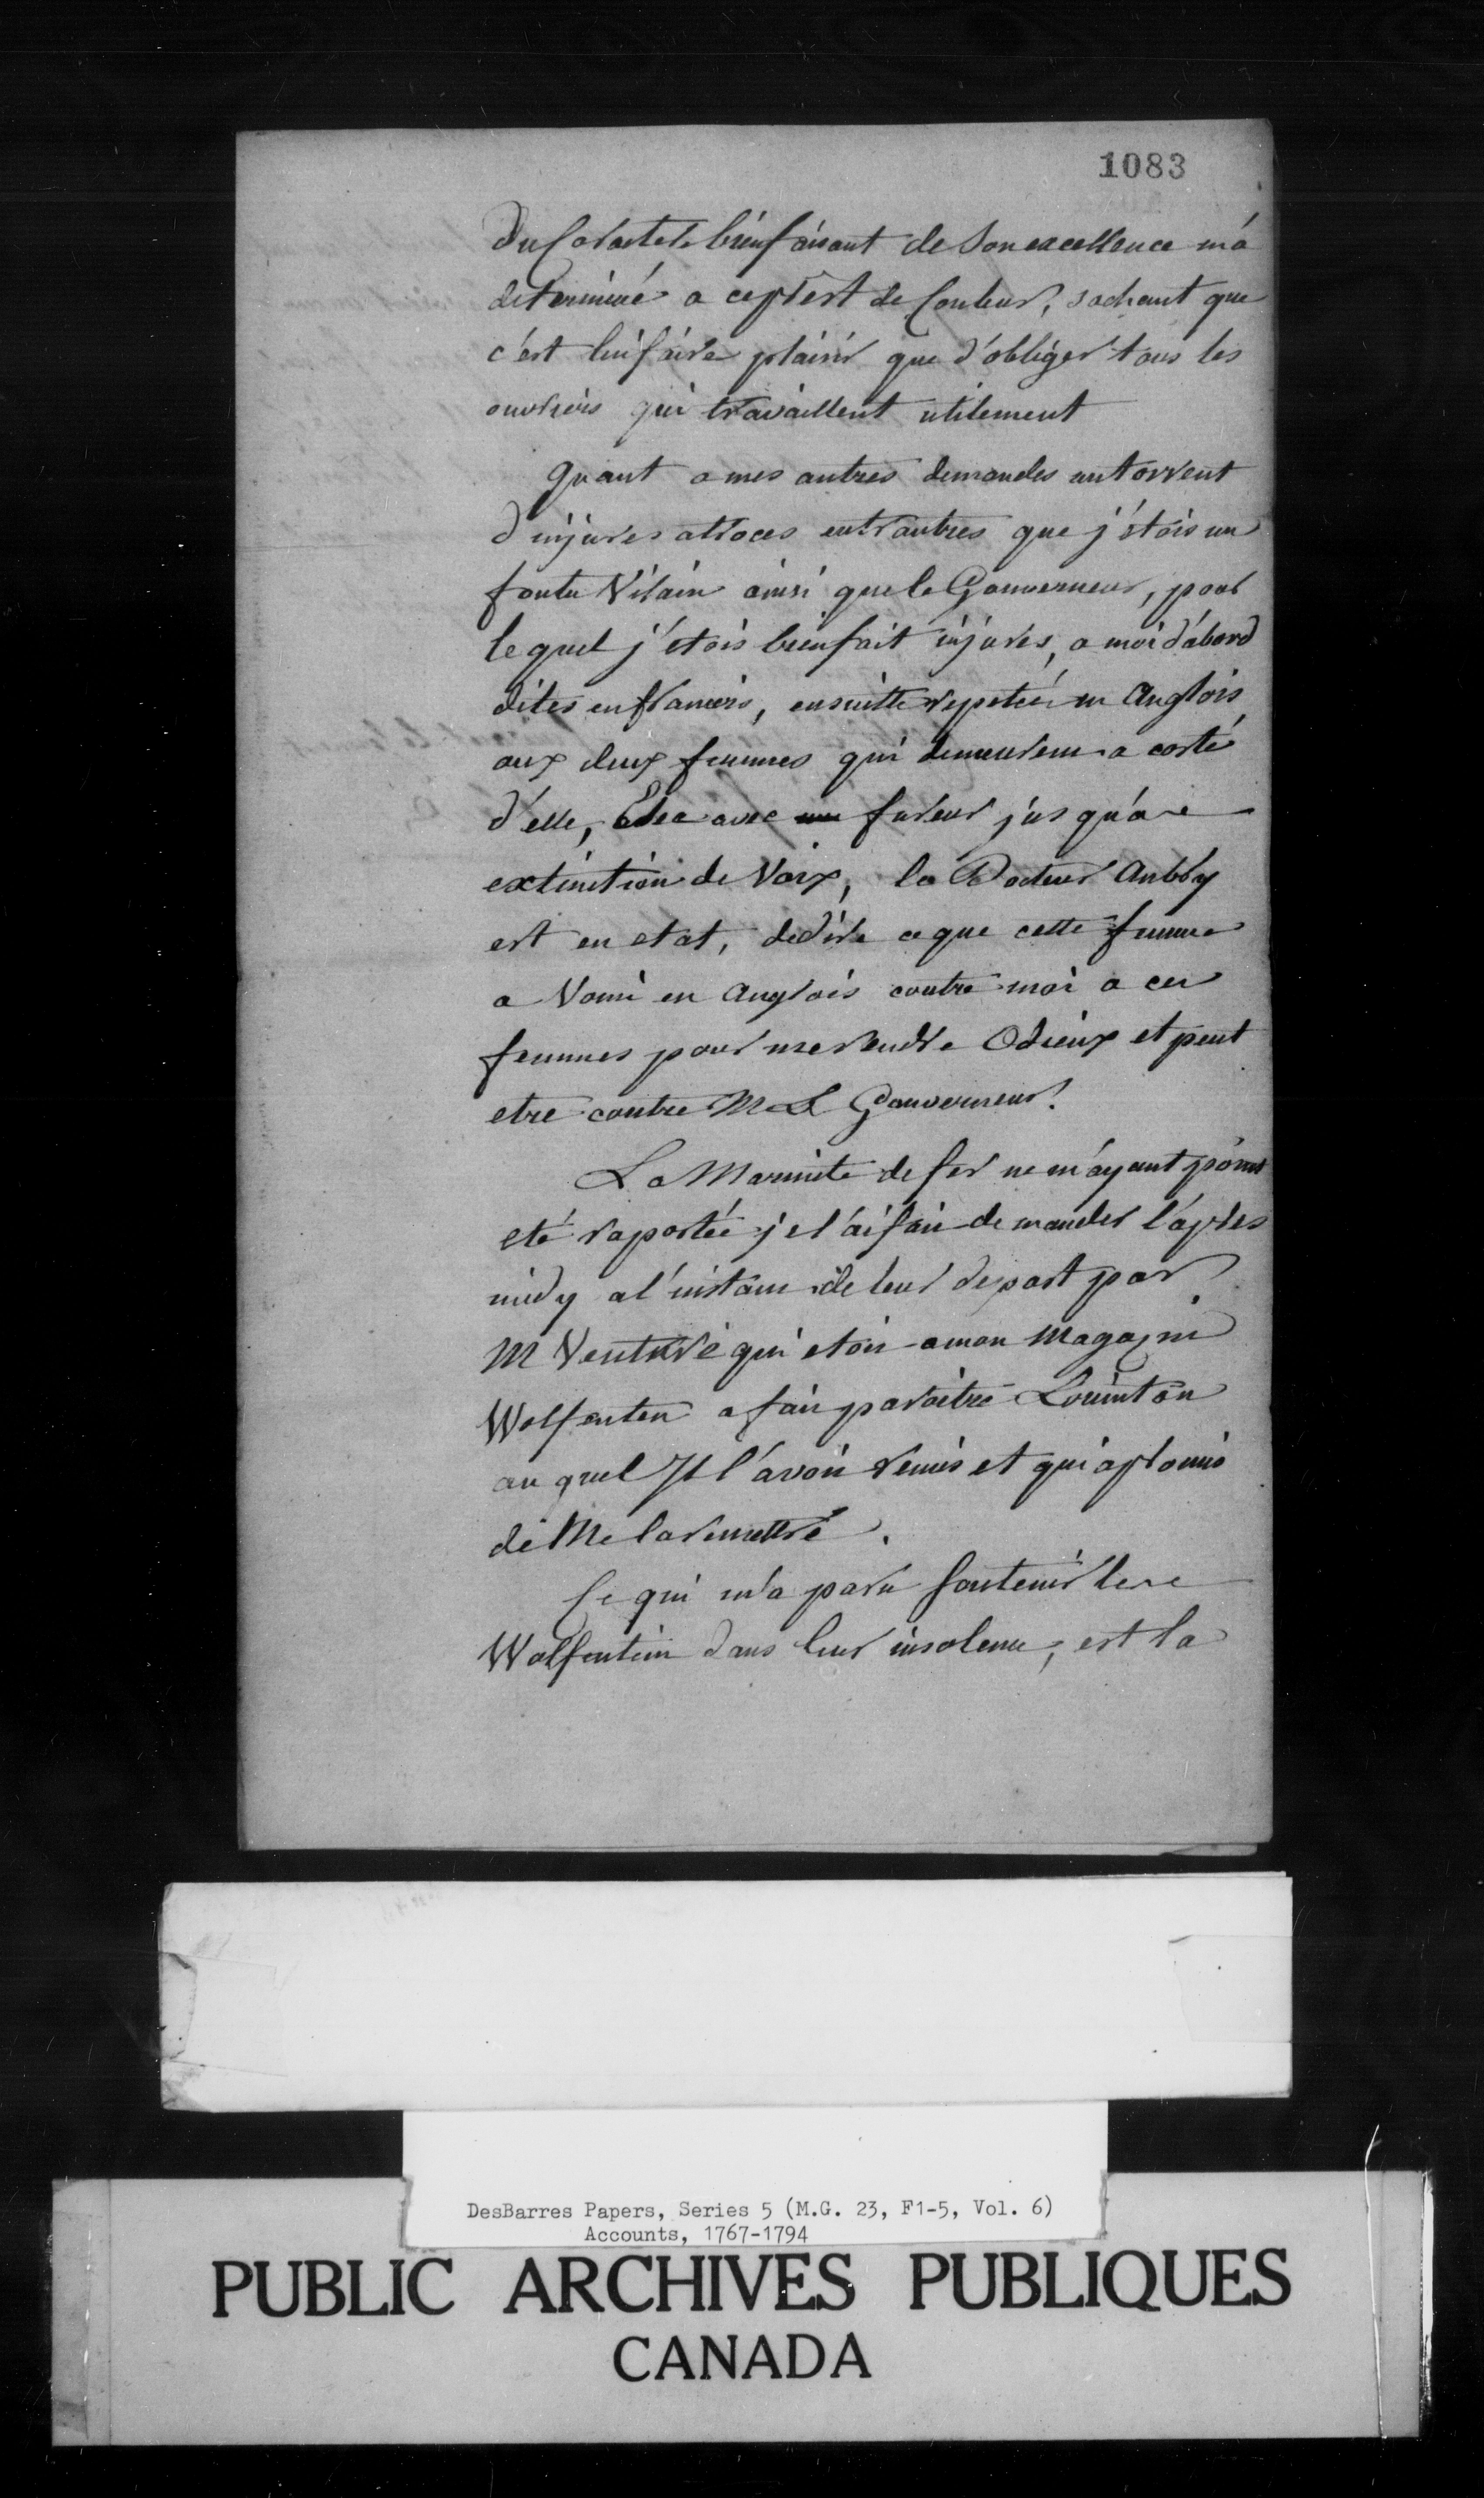 1083
Du Caractere bienfaisant de Son excellence m'a
determiné a ceprest de Couleur, sachant que
c'est luifaire plaisir que d'obliger tous les
ouvriers qui travaillent utilement
Quant a mes autres demandes untorrent
d'injures atroces entrautres que j'étois un
foutu Vilain ainsi que le Gouverneur, pour
lequel j'étois bienfait injures, a moi d'abord
dites enfrancois, ensuitte repetée en Anglois
aux deux femmes qui demeurem a costé
d'elle, avec fureur jusqu'a
extinction de Voix, le Docteur Aubby
est en etat, dedire ce que cette femme
a Vomi en Anglois contre moi a ces
femmes pour merendre Odieux et peut
etre contre M L Gouverneur.
La Marmite de fer ne m'ayant point
eté raportée je l'ai fai demander l'apres
midy a l'instam de leur depart par
M Venture qui etoi amon Magazin
Wolfenten a fai paroitre Louinton
auquel Il l'avoi remis et qui apromis
de Me laremettre.
Ce qui m'a paru Soutenir le
Wolfentein dans leur insolence, est la
DesBarres Papers, Series 5 (M.G. 23, F1-5, Vol. 6)
Accounts, 1767-1794
PUBLIC ARCHIVES PUBLIQUES
CANADA